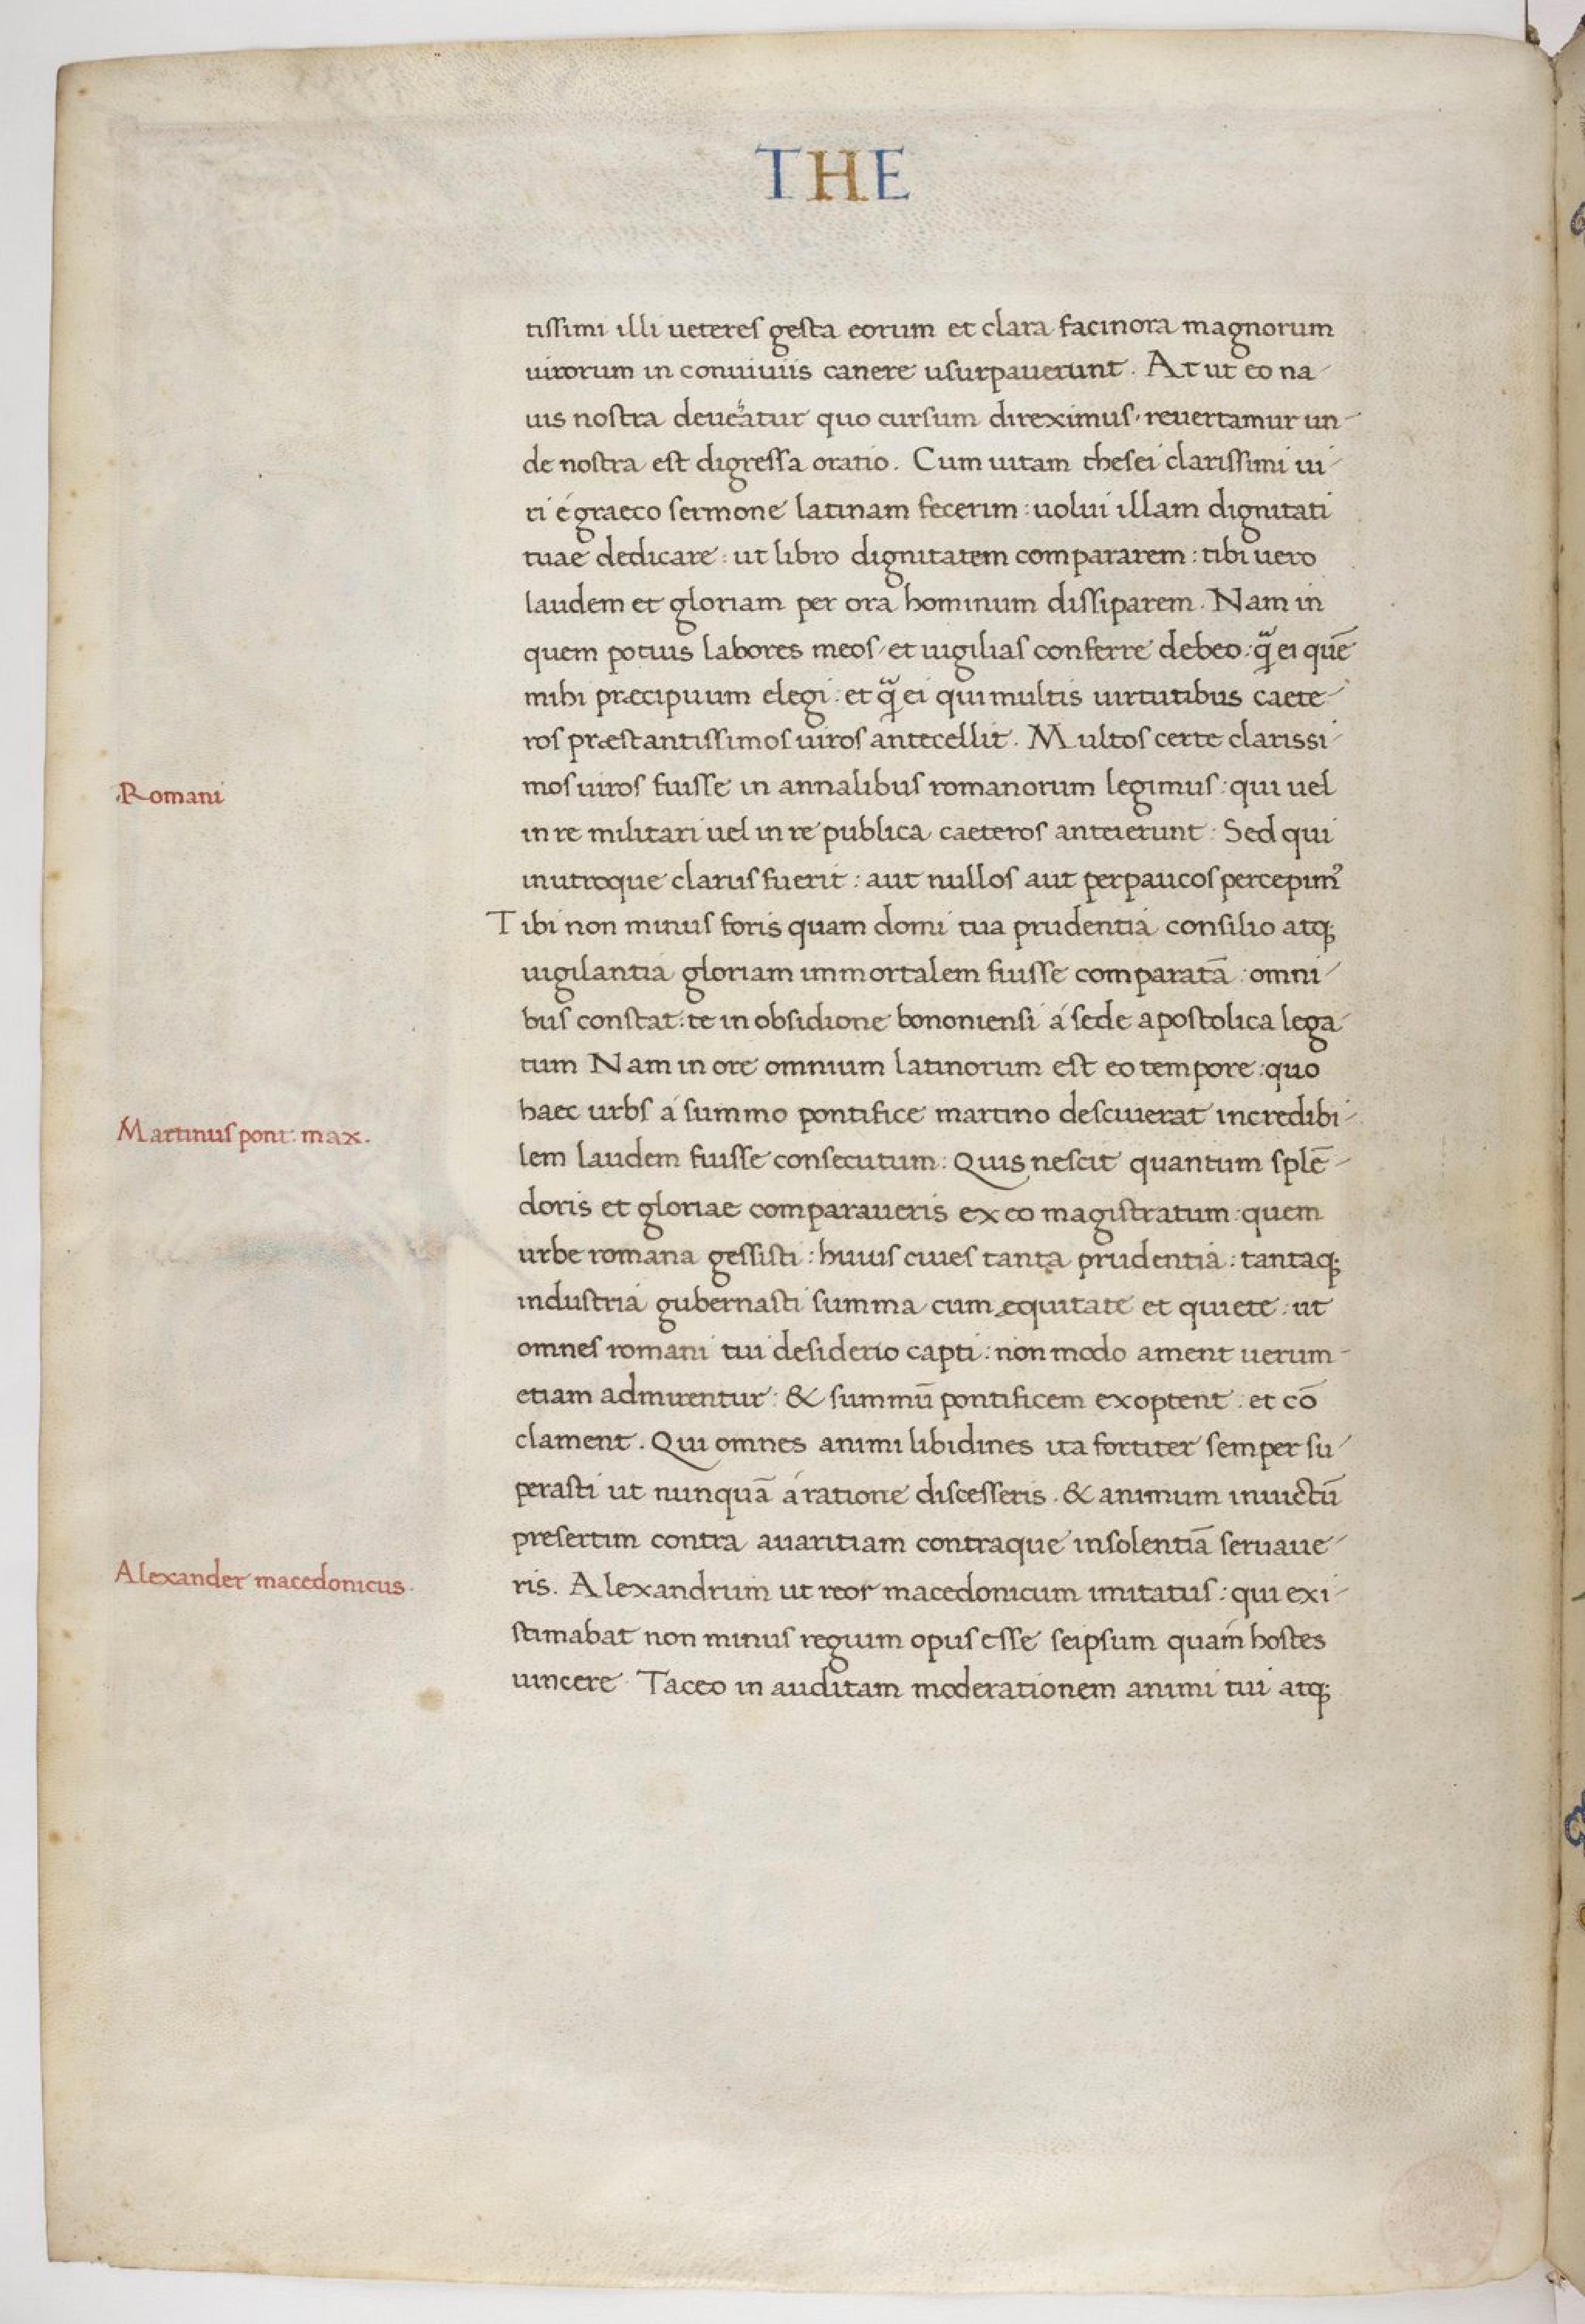 THE
tissimi illi ueteres gesta eorum et clara facinora magnorum
uirorum in conuiuiis canere usurpauerunt. At ut eo na-
uis nostra deueatur quo cursum direximus, reuertamur un-
de nostra est digressa oratio. Cum uitam thesei clarissimi ui-
ri é graeco sermone latinam fecerim: uolui illam dignitati
tuae dedicare: ut libro dignitatem compararem: tibi uero
laudem et gloriam per ora hominum dissiparem. Nam in
quem potius labores meos, et uigilias conferre debeo: quã ei quẽ
mihi præcipuum elegi: et quã ei qui multis uirtutibus caete-
ros præstantissimos uiros antecellit. Multos certe clarissi-
Romani
mos uiros fuisse in annalibus romanorum legimus: qui uel
in re militari uel in re publica caeteros anteierunt: Sed qui
in utroque clarus fuerit: aut nullos aut perpaucos percepimꝰ
Tibi non minus foris quam domi tua prudentia consilio atq;
uigilantia gloriam immortalem fuisse comparatã: omni-
bus constat: te in obsidione bononiensi á sede apostolica lega-
tum Nam in ore omnium latinorum est eo tempore: quo
haec urbs á summo pontifice martino desciuerat incredibi-
Martinus pont: max.
lem laudem fuisse consecutum: Quis nescit quantum splẽ-
doris et gloriae comparaueris ex eo magistratum: quem
urbe romana gessisti: huius ciues tanta prudentia: tantaq;
industria gubernasti summa cum ęquitate et quiete: ut
omnes romani tui desiderio capti: non modo ament uerum-
etiam admirentur: & summũ pontificem exoptent: et cõ
clament. Qui omnes animi libidines ita fortiter semper su-
perasti ut nunquã á ratione discesseris. & animum inuictũ
presertim contra auaritiam contraque insolentiã seruaue-
Alexander macedonicus.
ris. Alexandrum ut reor macedonicum imitatus: qui exi-
stimabat non minus regium opus esse seipsum quam hostes
uincere Taceo in auditam moderationem animi tui atq;